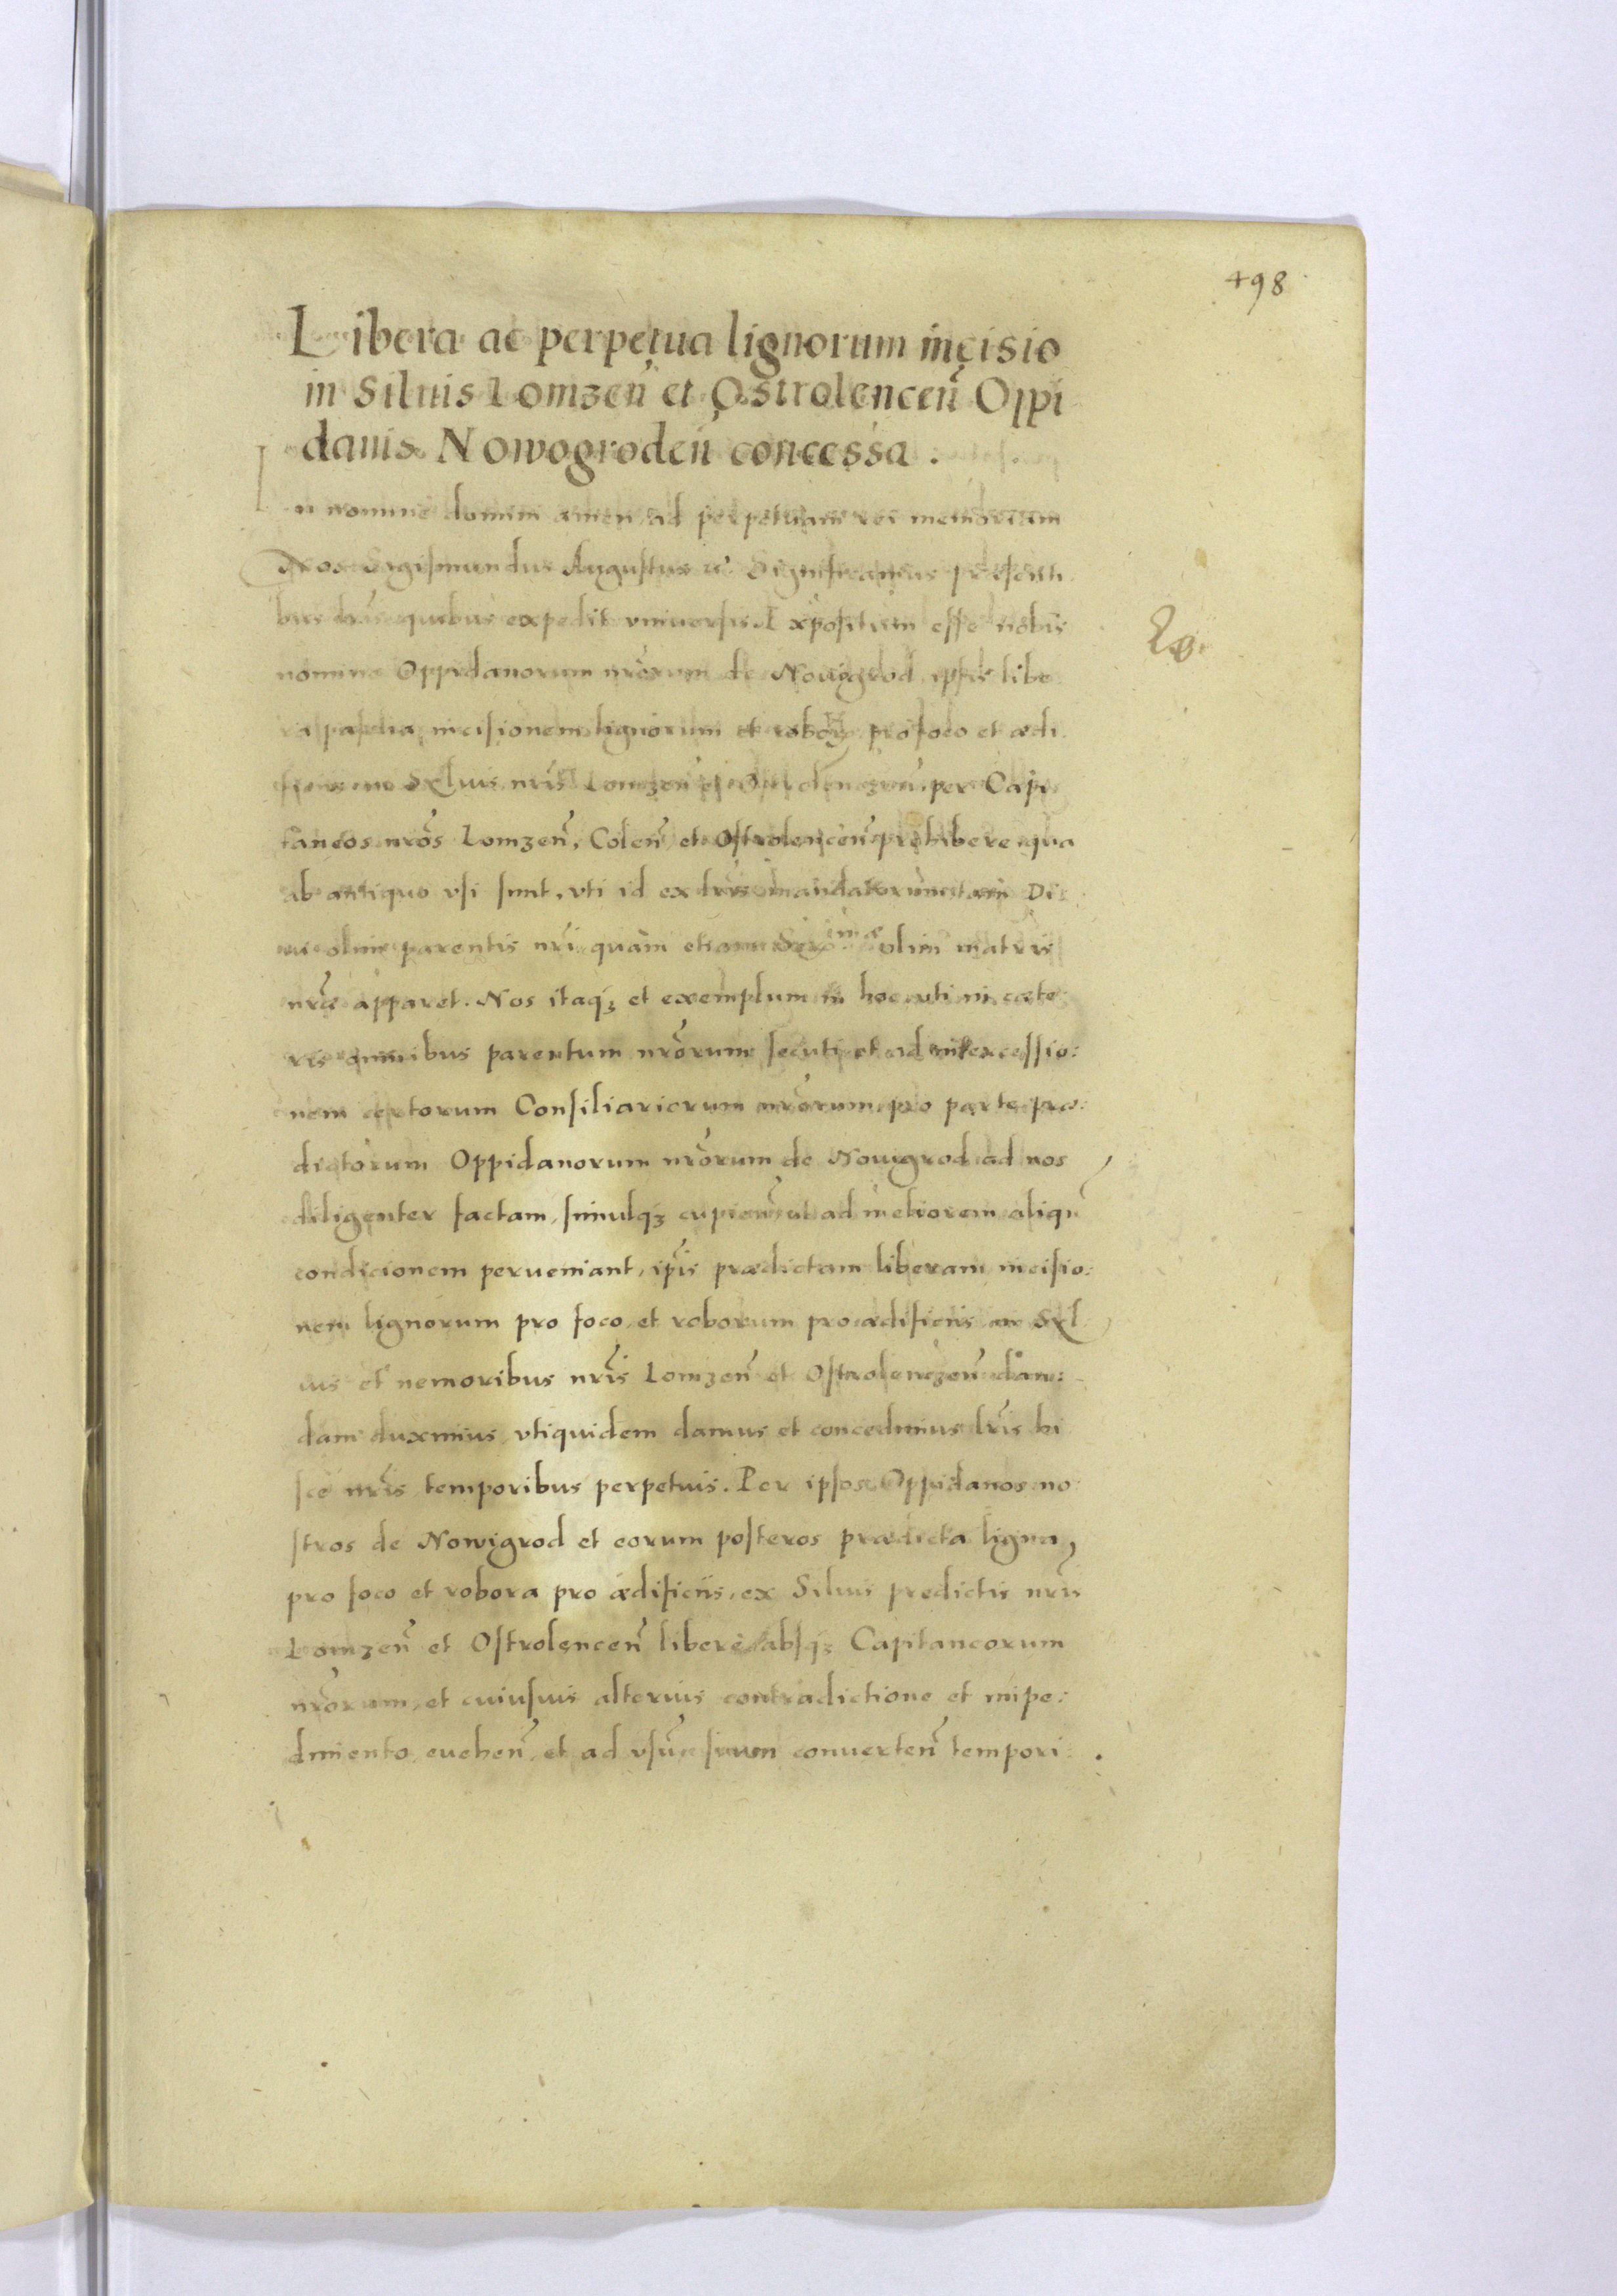 498
Libera ac perpetua lignorum incisio
in Siluis Lomzeñ et Ostrolenceñ Oppi
danis Nowogrodeñ concessa.
In nomine domini amen ad perpetuam rei memoriam
Nos Sigismundus Augustus Significamus præsenti
bus quibus expedit vniuersis. Expositum esse nobis
nomine Oppidanorum nrõrum de Nowigrod ipsis libe
ra incisionem lignorum et pro foco et ædi
Syluis nrĩs Lomzeñ et per Capi
taneos nrõs Lomzeñ, Coleñ et Ostrolenceñ prohibere qua
ab antiquo vsi sunt, vti id ex lrĩs mandatorum tam Di
ui olim parentis nrĩ quam etiam Serᵐᵃᵉ olim matris
nrǣ apparet. Nos itaqꝫ et exemplum in hoc uti in cæte
ris omnibus parentum nrõrum secuti et ad intercessio:
nem certorum Consiliariorum nrõrum pro parte præ:
dictorum Oppidanorum nrõrum de Nowigrod ad nos
diligenter factam, simulqꝫ cupieñ ut ad meliorem aliqũ
condicionem perueniant, ipĩs prædictam liberam incisio:
nem lignorum pro foco, et roborum pro ædificiis in Syl
uis et nemoribus nrĩs Lomzeñ et Ostrolenczeñ dan:
dam duximus, vtiquidem damus et concedimus lrĩs hi
sce nrĩs temporibus perpetuis. Per ipsos Oppidanos no
stros de Nowigrod et eorum posteros prædicta ligna,
pro foco et robora pro ædificiis, ex Siluis predictis nrĩs
Lomzeñ et Ostrolenceñ liberè absqꝫ Capitaneorum
nrõrum, et cuiusuis alterius contradictione et impe:
dimento eueheñ, et ad vsum suum conuerteñ tempori: